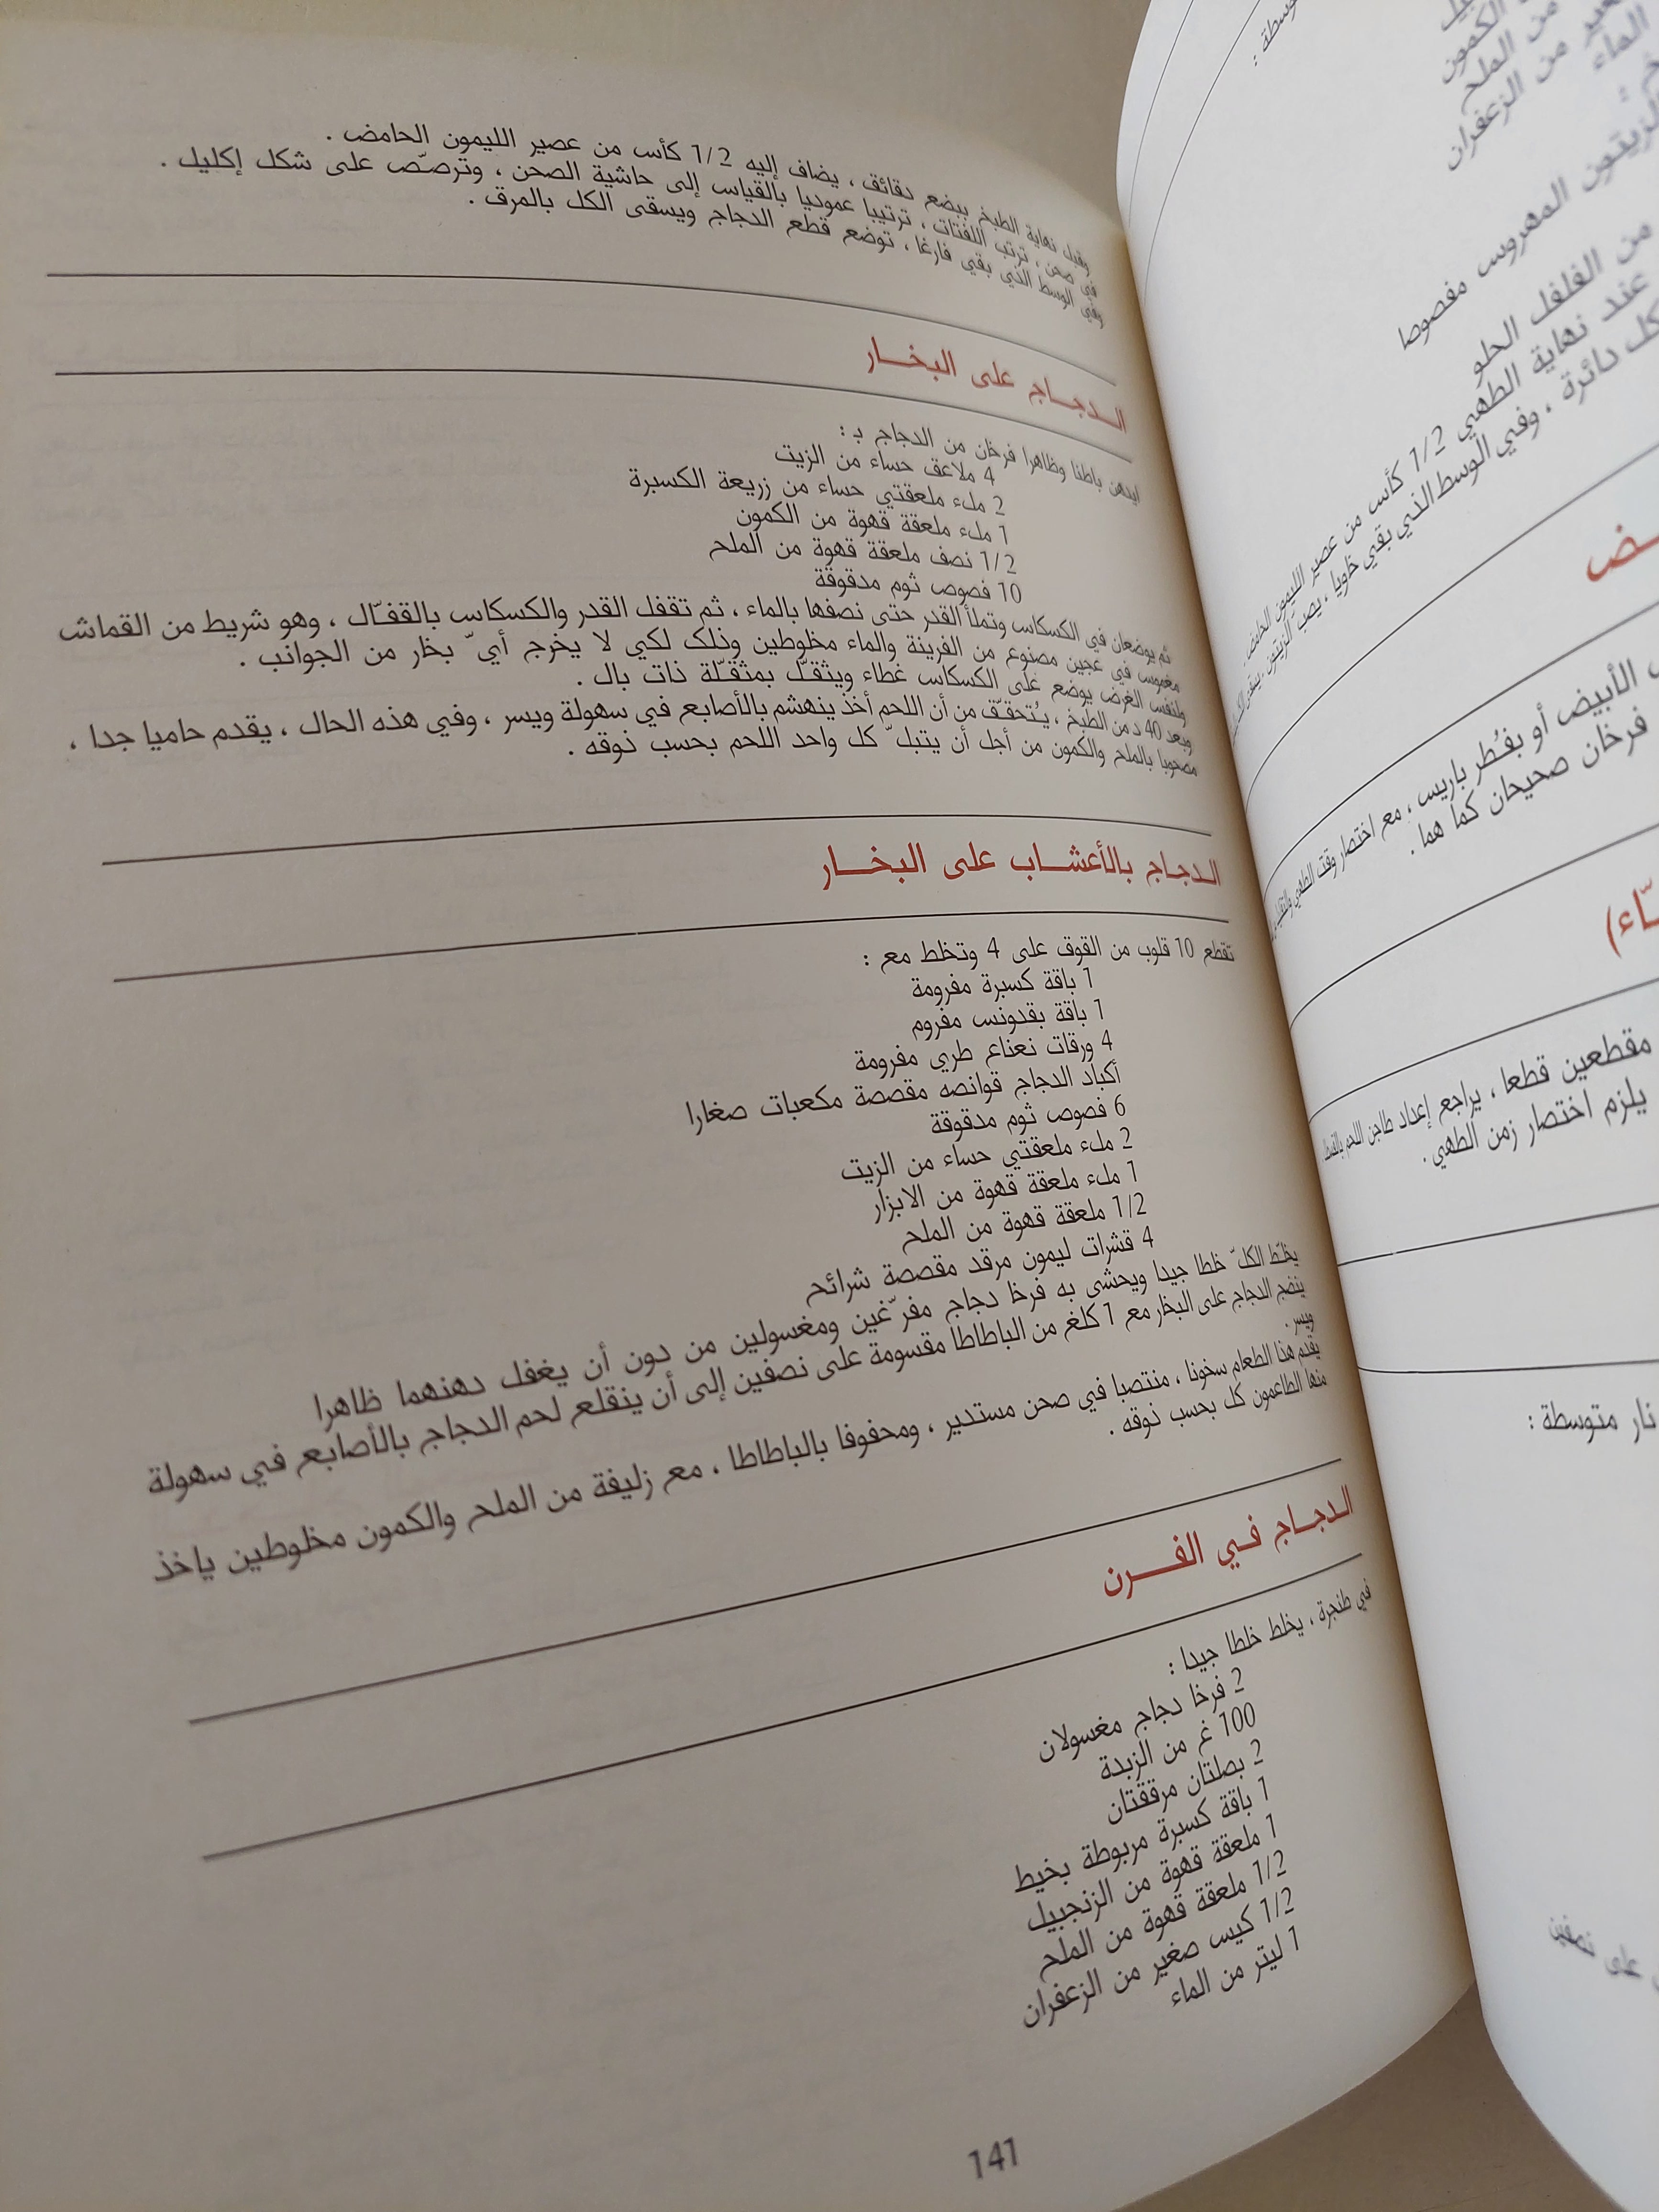 وقبل نهاية الطبخ ببضع دقائق ، يضاف إليه 1/2 كأس من عصير الليمون الحامض .
في صحن ، ترتب اللفتات ، ترتيبا عموديا بالقياس إلى حاشية الصحن ، وترصّص على شكل إكليل .
وفي الوسط الذي بقي فارغا ، توضع قطع الدجاج ويسقى الكل بالمرق .
الدجاج على البخار
ايدهن باطنا وظاهرا فرخان من الدجاج بـ :
4 ملاعق حساء من الزيت
2 ملء ملعقتي حساء من زريعة الكسبرة
1 ملء ملعقة قهوة من الكمون
1/2 نصف ملعقة قهوة من الملح
10 فصوص ثوم مدقوقة
ثم يوضعان في الكسكاس وتملأ القدر حتى نصفها بالماء ، ثم تقفل القدر والكسكاس بالقفّال ، وهو شريط من القماش
مغموس في عجين مصنوع من الفرينة والماء مخلوطين وذلك لكي لا يخرج أيّ بخار من الجوانب .
ولنفس الغرض يوضع على الكسكاس غطاء ويثقّل بمثقّلة ذات بال .
وبعد 40 د من الطبخ ، يُتحقّق من أن اللحم أخذ ينهشم بالأصابع في سهولة ويسر ، وفي هذه الحال ، يقدم حاميا جدا ،
مصحوبا بالملح والكمون من أجل أن يتبلّ كل واحد اللحم بحسب ذوقه .
الدجاج بالأعشاب على البخار
تقطع 10 قلوب من القوق على 4 وتخلط مع :
1 باقة كسبرة مفرومة
1 باقة بقدونس مفروم
4 ورقات نعناع طري مفرومة
أكباد الدجاج قوانصه مقصصة مكعبات صغارا
6 فصوص ثوم مدقوقة
2 ملء ملعقتي حساء من الزيت
1 ملء ملعقة قهوة من الابزار
1/2 ملعقة قهوة من الملح
4 قشرات ليمون مرقد مقصصة شرائح
يخلّط الكلّ خلطا جيدا ويحشى به فرخا دجاج مفرّغين ومغسولين من دون أن يغفل دهنهما ظاهرا
ينضج الدجاج على البخار مع 1 كلغ من الباطاطا مقسومة على نصفين إلى أن ينقلع لحم الدجاج بالأصابع في سهولة
ويسر .
يقدم هذا الطعام سخونا ، منتصبا في صحن مستدير ، ومحفوفا بالباطاطا ، مع زليفة من الملح والكمون مخلوطين ياخذ
منها الطاعمون كل بحسب ذوقه .
الدجاج في الفرن
في طنجرة ، يخلط خلطا جيدا :
2 فرخا دجاج مغسولان
100 غ من الزبدة
2 بصلتان مرققتان
1 باقة كسبرة مربوطة بخيط
1 ملعقة قهوة من الزنجبيل
1/2 ملعقة قهوة من الملح
1/2 كيس صغير من الزعفران
1 ليتر من الماء
141
الكمون
من الملح
من الزعفران
الماء
الزيتون المهروس مفصوصا
من الفلفل الحلو
عند نهاية الطهي 1/2 كأس من عصير الليمون الحامض .
دائرة ، وفي الوسط الذي بقي خاويا ، يصبّ الزيتون ،
الأبيض أو بفُطر باريس ، مع اختصار وقت الطهي
فرخان صحيحان كما هما .
مقطعين قطعا ، يراجع إعداد طاجن اللحم
يلزم اختصار زمن الطهي .
نار متوسطة :
على نصفين